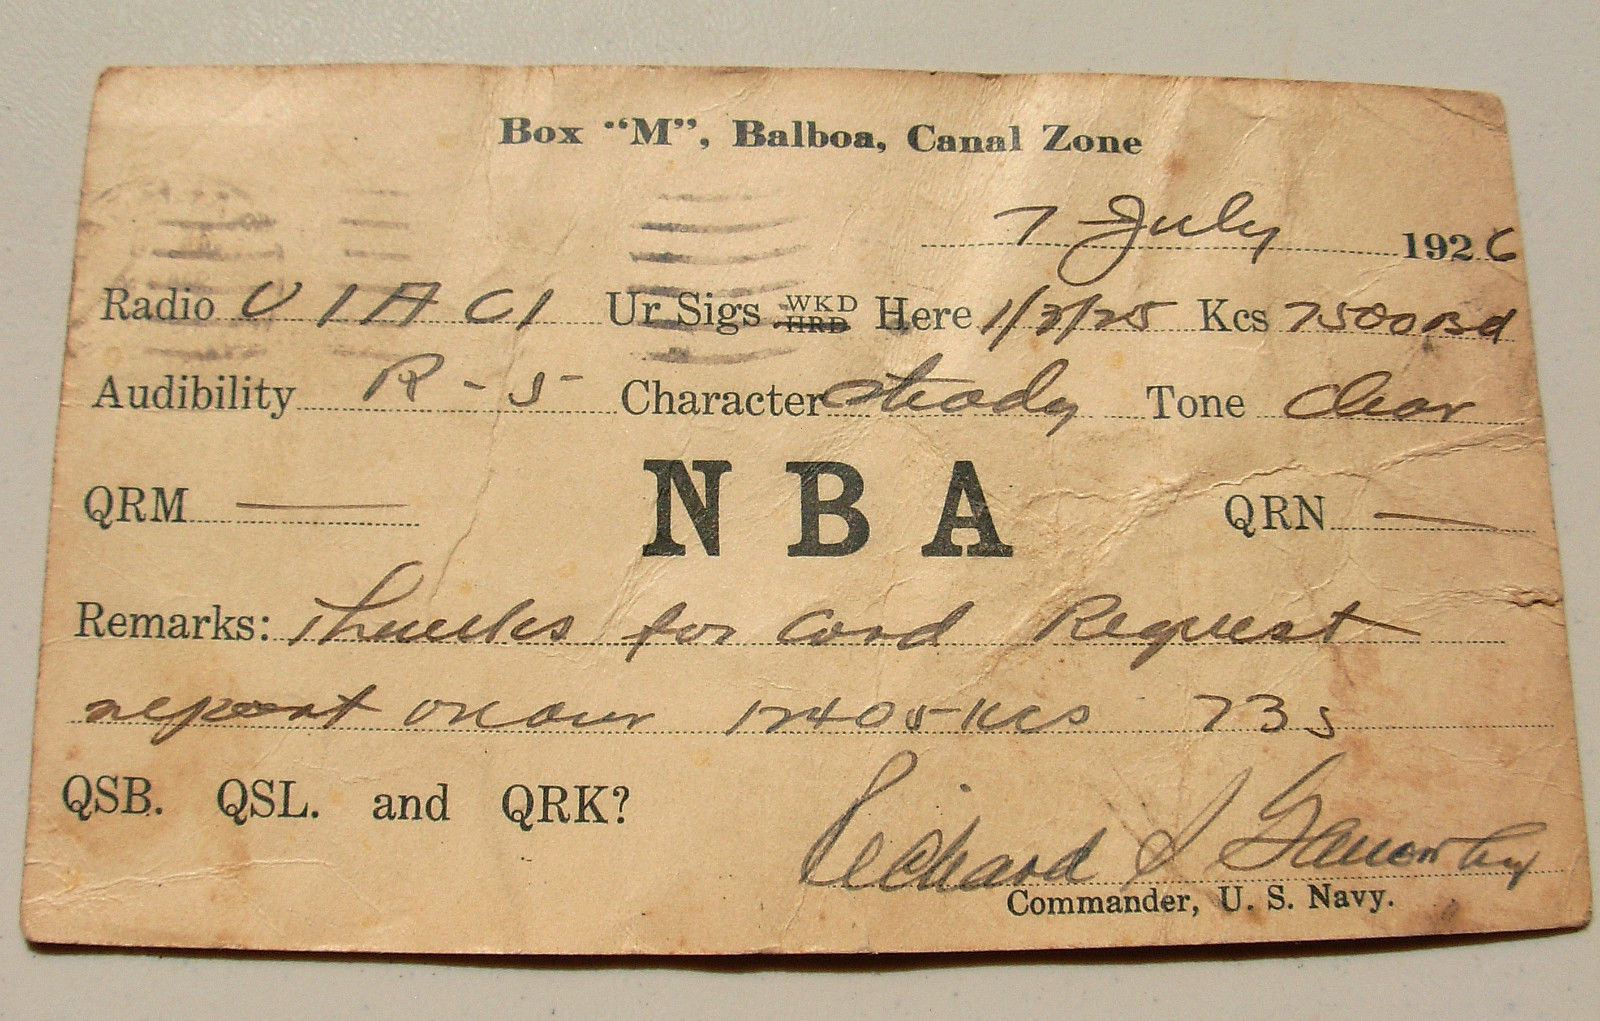 Box “M”, Balboa, Canal Zone
7 July 1926
Radio U 1 A CI Ur Sigs WKD HRD Here 1/2/25 Kcs 7500 Bd
Audibility R - 5 Character steady Tone clear
QRM — N B A QRN —
Remarks: Thanks for card Request
report on our 12405 Kcs 73s
QSB. QSL. and QRK?
Richard S
Commander, U. S. Navy.